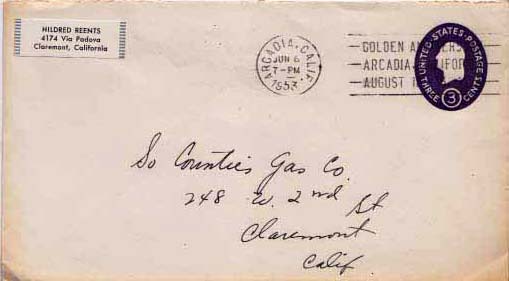 HILDRED REENTS
4174 Via Padova
Claremont, California
ARCADIA, CALIF.
JUN 6
7-PM
1953
GOLDEN
ARCADIA
AUGUST
UNITED STATES POSTAGE
THREE 3 CENTS
So Counties Gas Co.
248 W. 2nd St
Claremont
Calif